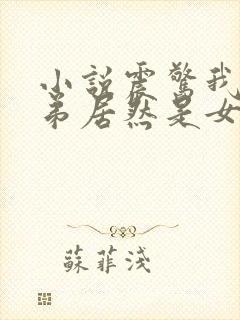 小說震驚我
弟居然是女
蘇菲淺